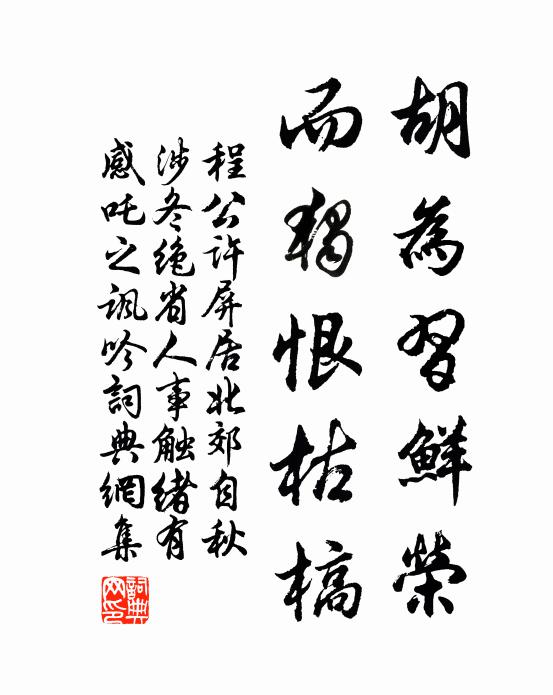 胡為習鮮榮
而獨恨枯槁
程公許屏居北郊自秋
涉冬絶省人事触緒有
感吒之諷吟詞典網集
詞典
网印